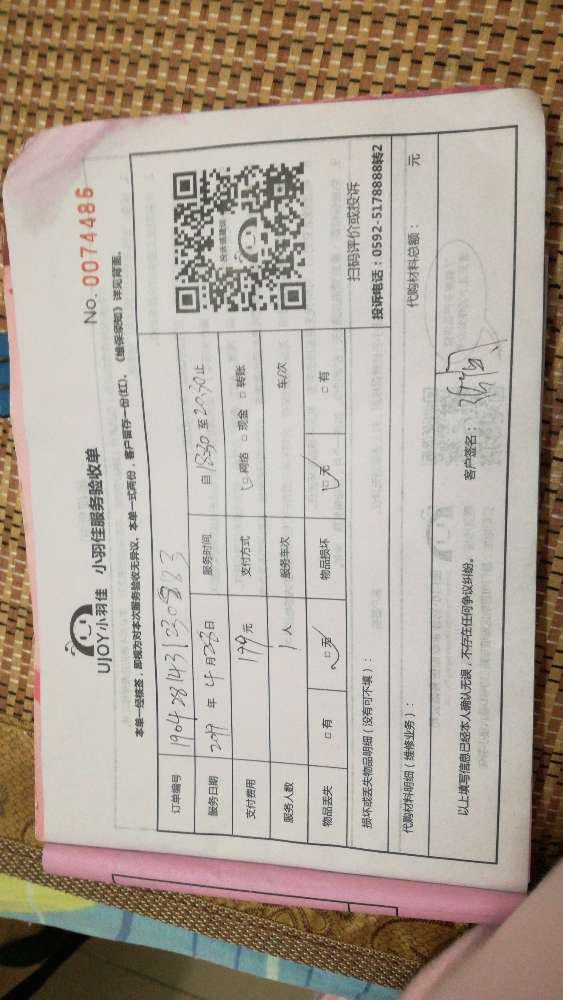 UJOY小羽佳 小羽佳服务验收单 No. 0074486
本单一经核签，即视为对本次服务验收无异议。本单一式两份，客户留存一份(红)，《维保须知》详见背面。
订单编号 190428143130883
服务日期 2019 年 4 月 28 日 服务时间 自 18:30 至 20:30 止
支付费用 199 元 支付方式 网络 □ 现金 □ 转账
服务人数 1 人 服务车次 车/次
物品丢失 □ 有 □ 无 物品损坏 □ 无 □ 有
扫码评价或投诉
投诉电话：0592-5178888转2
损坏或丢失物品明细（没有可不填）：
代购材料明细（维修业务）： 代购材料总额： 元
以上填写信息已经本人确认无误，不存在任何争议纠纷。 客户签名：